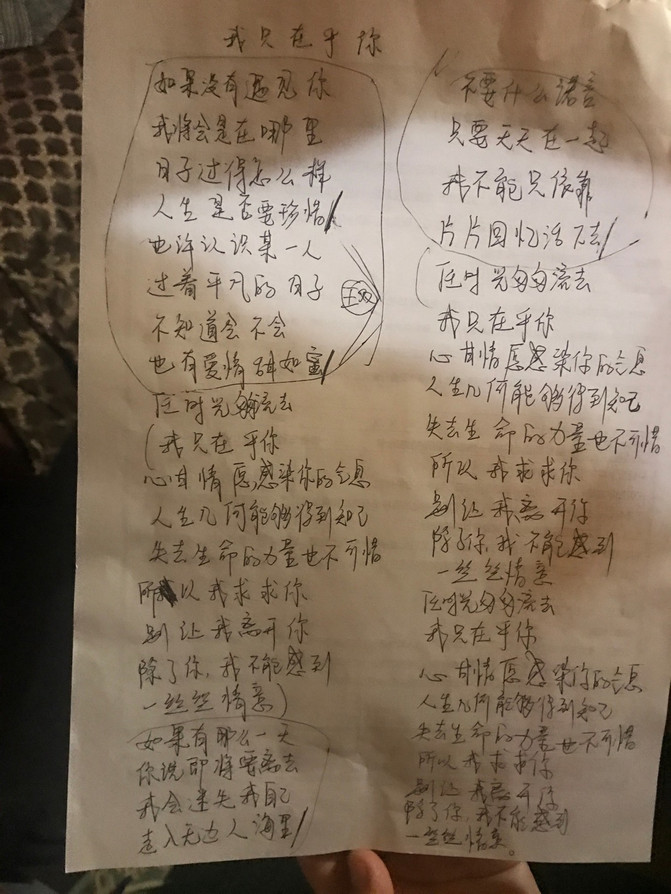 我只在乎你
如果没有遇见你
我将会是在哪里
日子过得怎么样
人生是否要珍惜
也许认识某一人
过着平凡的日子
不知道会不会
也有爱情甜如蜜
任时光匆匆流去
我只在乎你
心甘情愿感染你的气息
人生几何能够得到知己
失去生命的力量也不可惜
所以我求求你
别让我离开你
除了你,我不能感到
一丝丝情意
如果有那么一天
你说即将要离去
我会迷失我自己
走入无边人海里
不要什么诺言
只要天天在一起
我不能只依靠
片片回忆活下去
任时光匆匆流去
我只在乎你
心甘情愿感染你的气息
人生几何能够得到知己
失去生命的力量也不可惜
所以我求求你
别让我离开你
除了你,我不能感到
一丝丝情意
任时光匆匆流去
我只在乎你
心甘情愿感染你的气息
人生几何能够得到知己
失去生命的力量也不可惜
所以我求求你
别让我离开你
除了你,我不能感到
一丝丝情意。